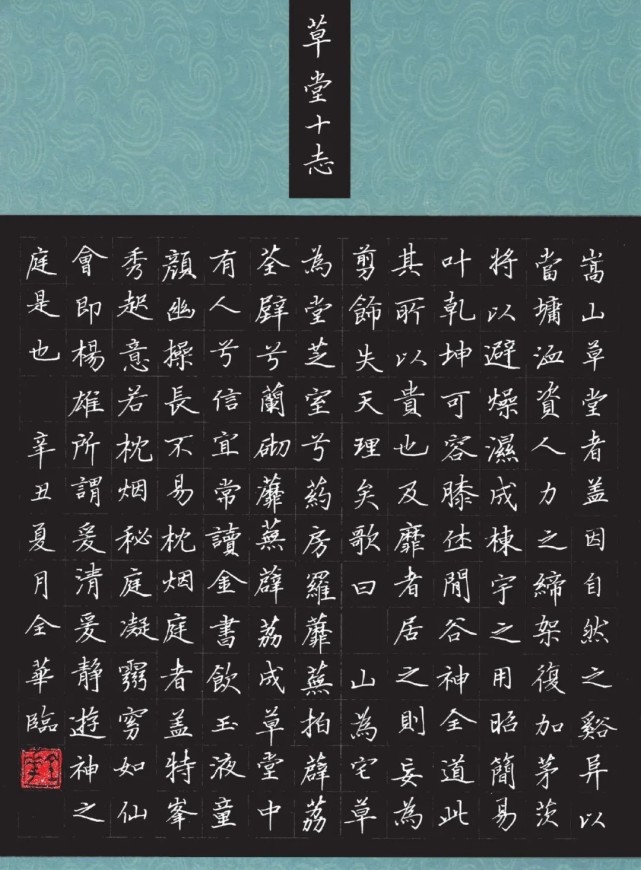 草堂十志
嵩山草堂者盖因自然之谿异以
當墉洫資人力之締架復加茅茨
将以避燥濕成棟宇之用昭簡易
叶乾坤可容膝休閒谷神全道此
其所以貴也及靡者居之則妄為
剪飾失天理矣歌曰 山為宅草
為堂芝室兮葯房羅蘼蕪拍薜荔
荃壁兮蘭砌蘼蕪薜荔成草堂中
有人兮信宜常讀金書飲玉液童
顔幽操長不易枕烟庭者盖特峯
秀起意若枕烟秘庭凝如仙
會即楊雄所謂爰清爰静遊神之
庭是也 辛丑夏月全華臨